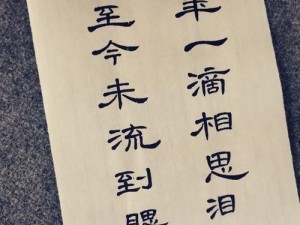 年一滴相思泪
至今未流到腮